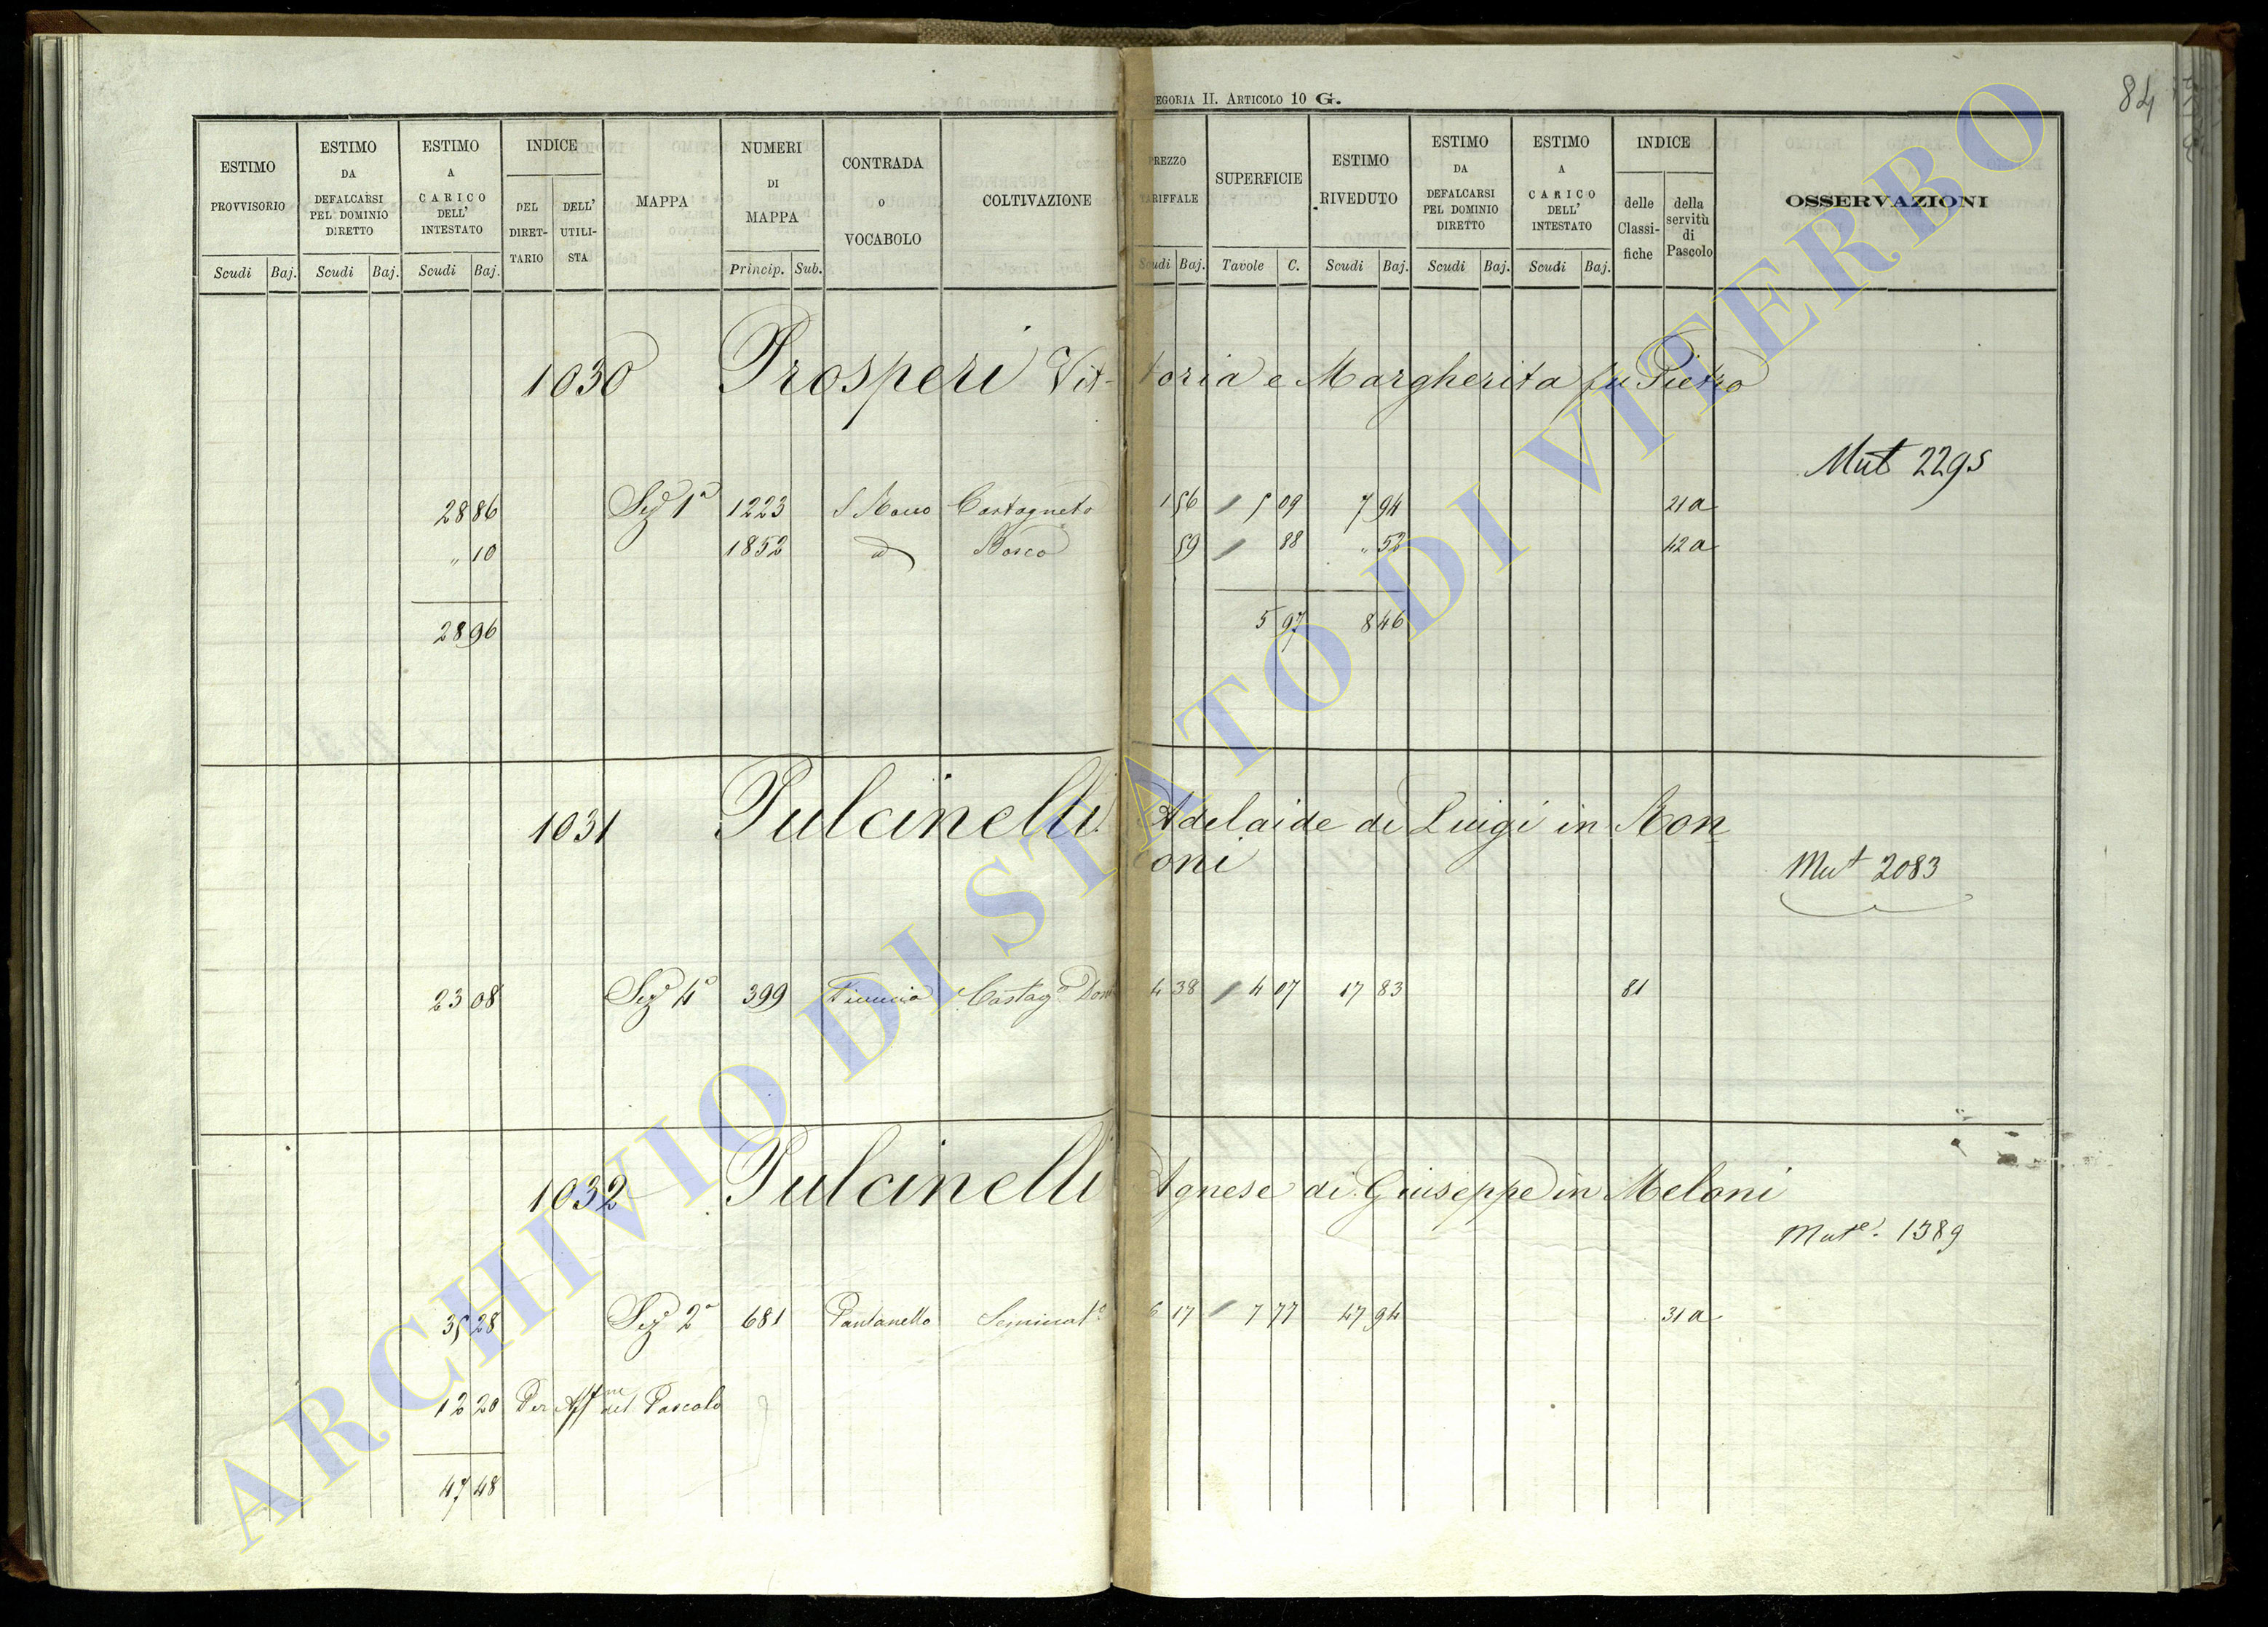 84
TEGORIA II. ARTICOLO 10 G.
ESTIMO PROVVISORIO Scudi Baj.
ESTIMO DA DEFALCARSI PEL DOMINIO DIRETTO Scudi Baj.
ESTIMO A CARICO DELL' INTESTATO Scudi Baj.
INDICE DEL DIRET-TARIO DELL' UTILI-STA
MAPPA
NUMERI DI MAPPA Princip. Sub.
CONTRADA O VOCABOLO
COLTIVAZIONE
PREZZO TARIFFALE Scudi Baj.
SUPERFICIE Tavole C.
ESTIMO RIVEDUTO Scudi Baj.
ESTIMO DA DEFALCARSI PEL DOMINIO DIRETTO Scudi Baj.
ESTIMO A CARICO DELL' INTESTATO Scudi Baj.
INDICE delle Classi-fiche della servitù di Pascolo
OSSERVAZIONI
1030 Prosperi Vit-toria e Margherita fu Pietro
Mut 2295
28 86 Sez 1ª 1223 S Rocco Castagneto 1 56 5 09 7 94 21 a
" 10 1852 d Bosco 59 88 " 52 42 a
28 96 5 97 8 46
1031 Pulcinelli Adelaide di Luigi in Ron
coni
Mut 2083
23 08 Sez 4ª 399 Castagº Dom 4 38 4 07 17 83 81
1032 Pulcinelli Agnese di Giuseppe in Meloni
Mutᵉ. 1389
35 28 Sez 2ª 681 Pantanello Seminatº 6 17 7 77 47 94 31 a
12 20 Per Affⁿᵉ del Pascolo
47 48
ARCHIVIO DI STATO DI VITERBO